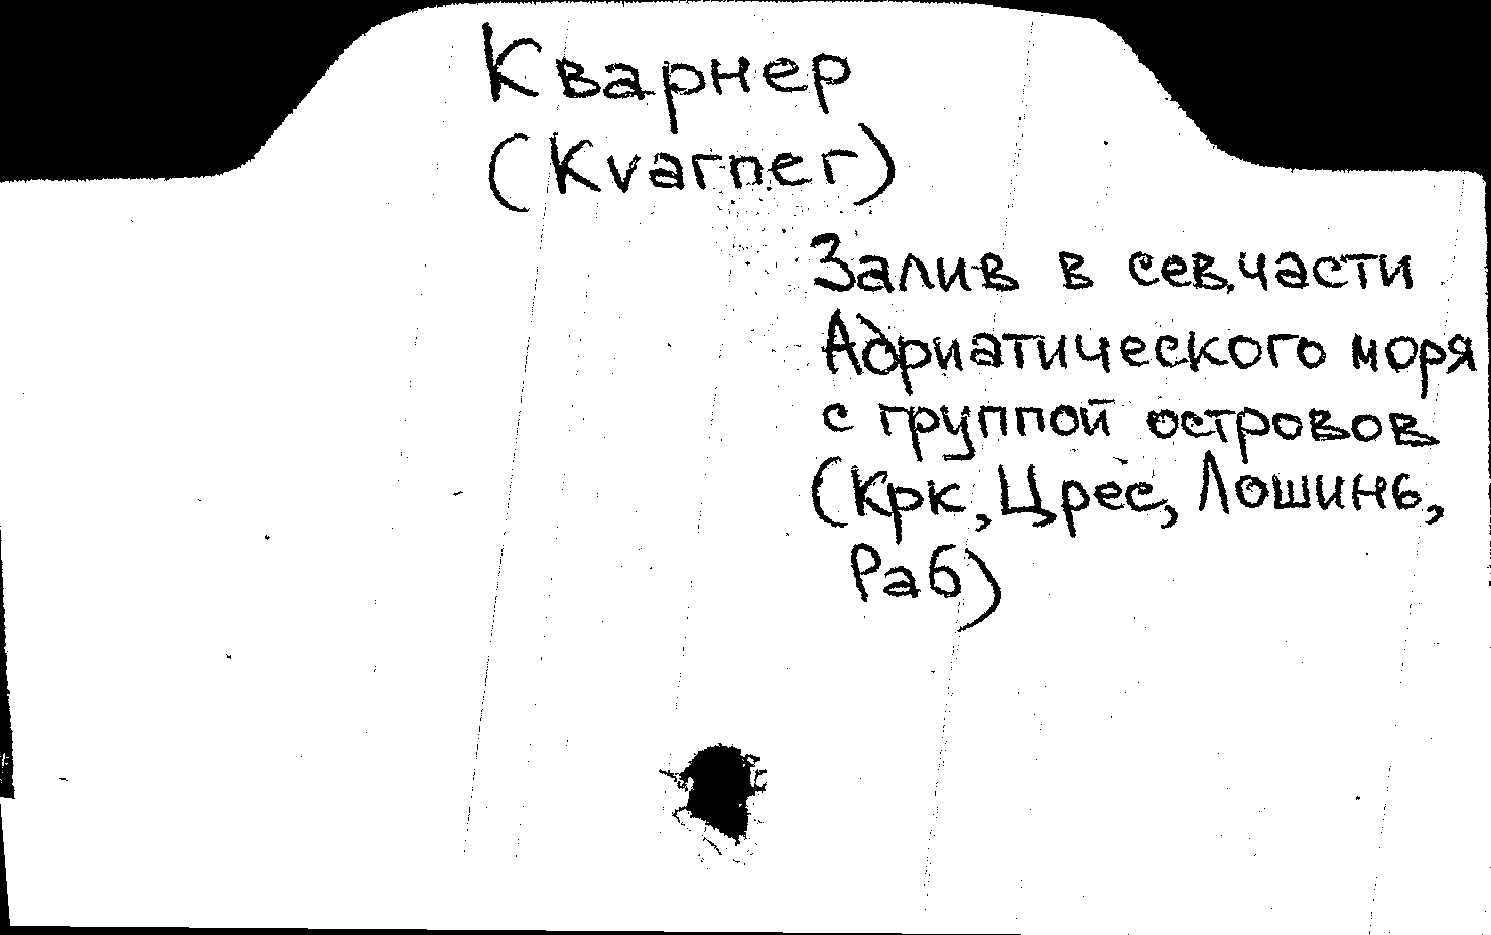 Кварнер
(Kvarner)
Залив в сев.части
Адриатического моря
с группой островов
(Крк, Црес, Лошинь,
Раб)